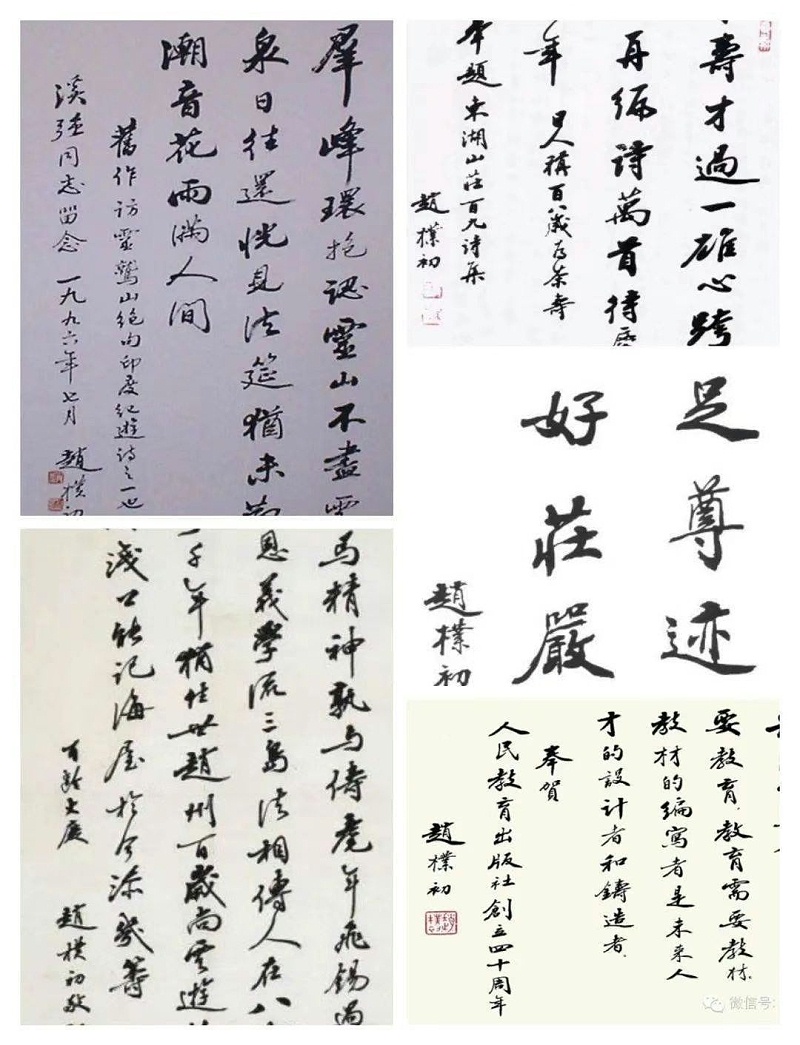 羣峰環抱認靈山不盡雲
泉日往還恍見法筵猶未
潮音花雨滿人間
舊作訪靈鷲山絕句印度紀遊詩之一也
同志留念 一九九六年七月 趙樸初
壽才過一雄心跨
再編詩萬首待
年 日人稱百八歲為茶壽
奉題東湖山莊百九詩集
趙樸初
足尊迹
好莊嚴
趙樸初
馬精神孰與儔耄年飛錫過
恩義學流三島法相傳人在八
一千年猶住世趙州百歲尚雲遊
淺只能記海屋於今添幾籌
百齡大慶
趙樸初敬
要教育，教育需要教材。
教材的編寫者是未來人
才的設計者和鑄造者。
奉賀
人民教育出版社創立四十周年
趙樸初
微信号: